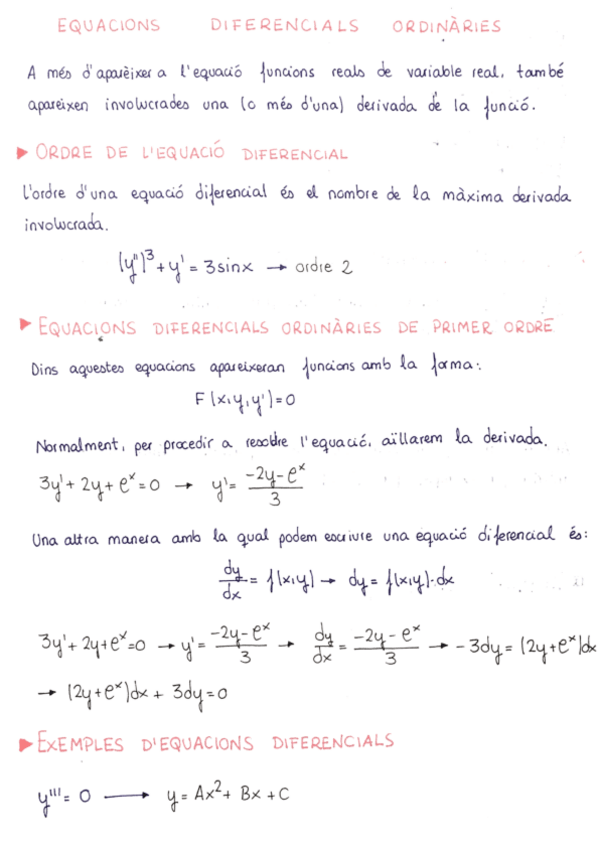 EQUACIONS DIFERENCIALS ORDINÀRIES
A més d'aparèixer a l'equació funcions reals de variable real, també
apareixen involucrades una (o més d'una) derivada de la funció.
▶ ORDRE DE L'EQUACIÓ DIFERENCIAL
L'ordre d'una equació diferencial és el nombre de la màxima derivada
involucrada.
(y'')³ + y' = 3sinx → ordre 2
▶ EQUACIONS DIFERENCIALS ORDINÀRIES DE PRIMER ORDRE
Dins aquestes equacions apareixeran funcions amb la forma:
F(x,y,y')=0
Normalment, per procedir a resoldre l'equació, aïllarem la derivada.
3y' + 2y + eˣ = 0 → y' = (-2y - eˣ)/3
Una altra manera amb la qual podem escriure una equació diferencial és:
dy/dx = f(x,y) → dy = f(x,y)·dx
3y' + 2y + eˣ = 0 → y' = (-2y - eˣ)/3 → dy/dx = (-2y - eˣ)/3 → -3dy = (2y + eˣ)dx
→ (2y + eˣ)dx + 3dy = 0
▶ EXEMPLES D'EQUACIONS DIFERENCIALS
y''' = 0 → y = Ax² + Bx + C